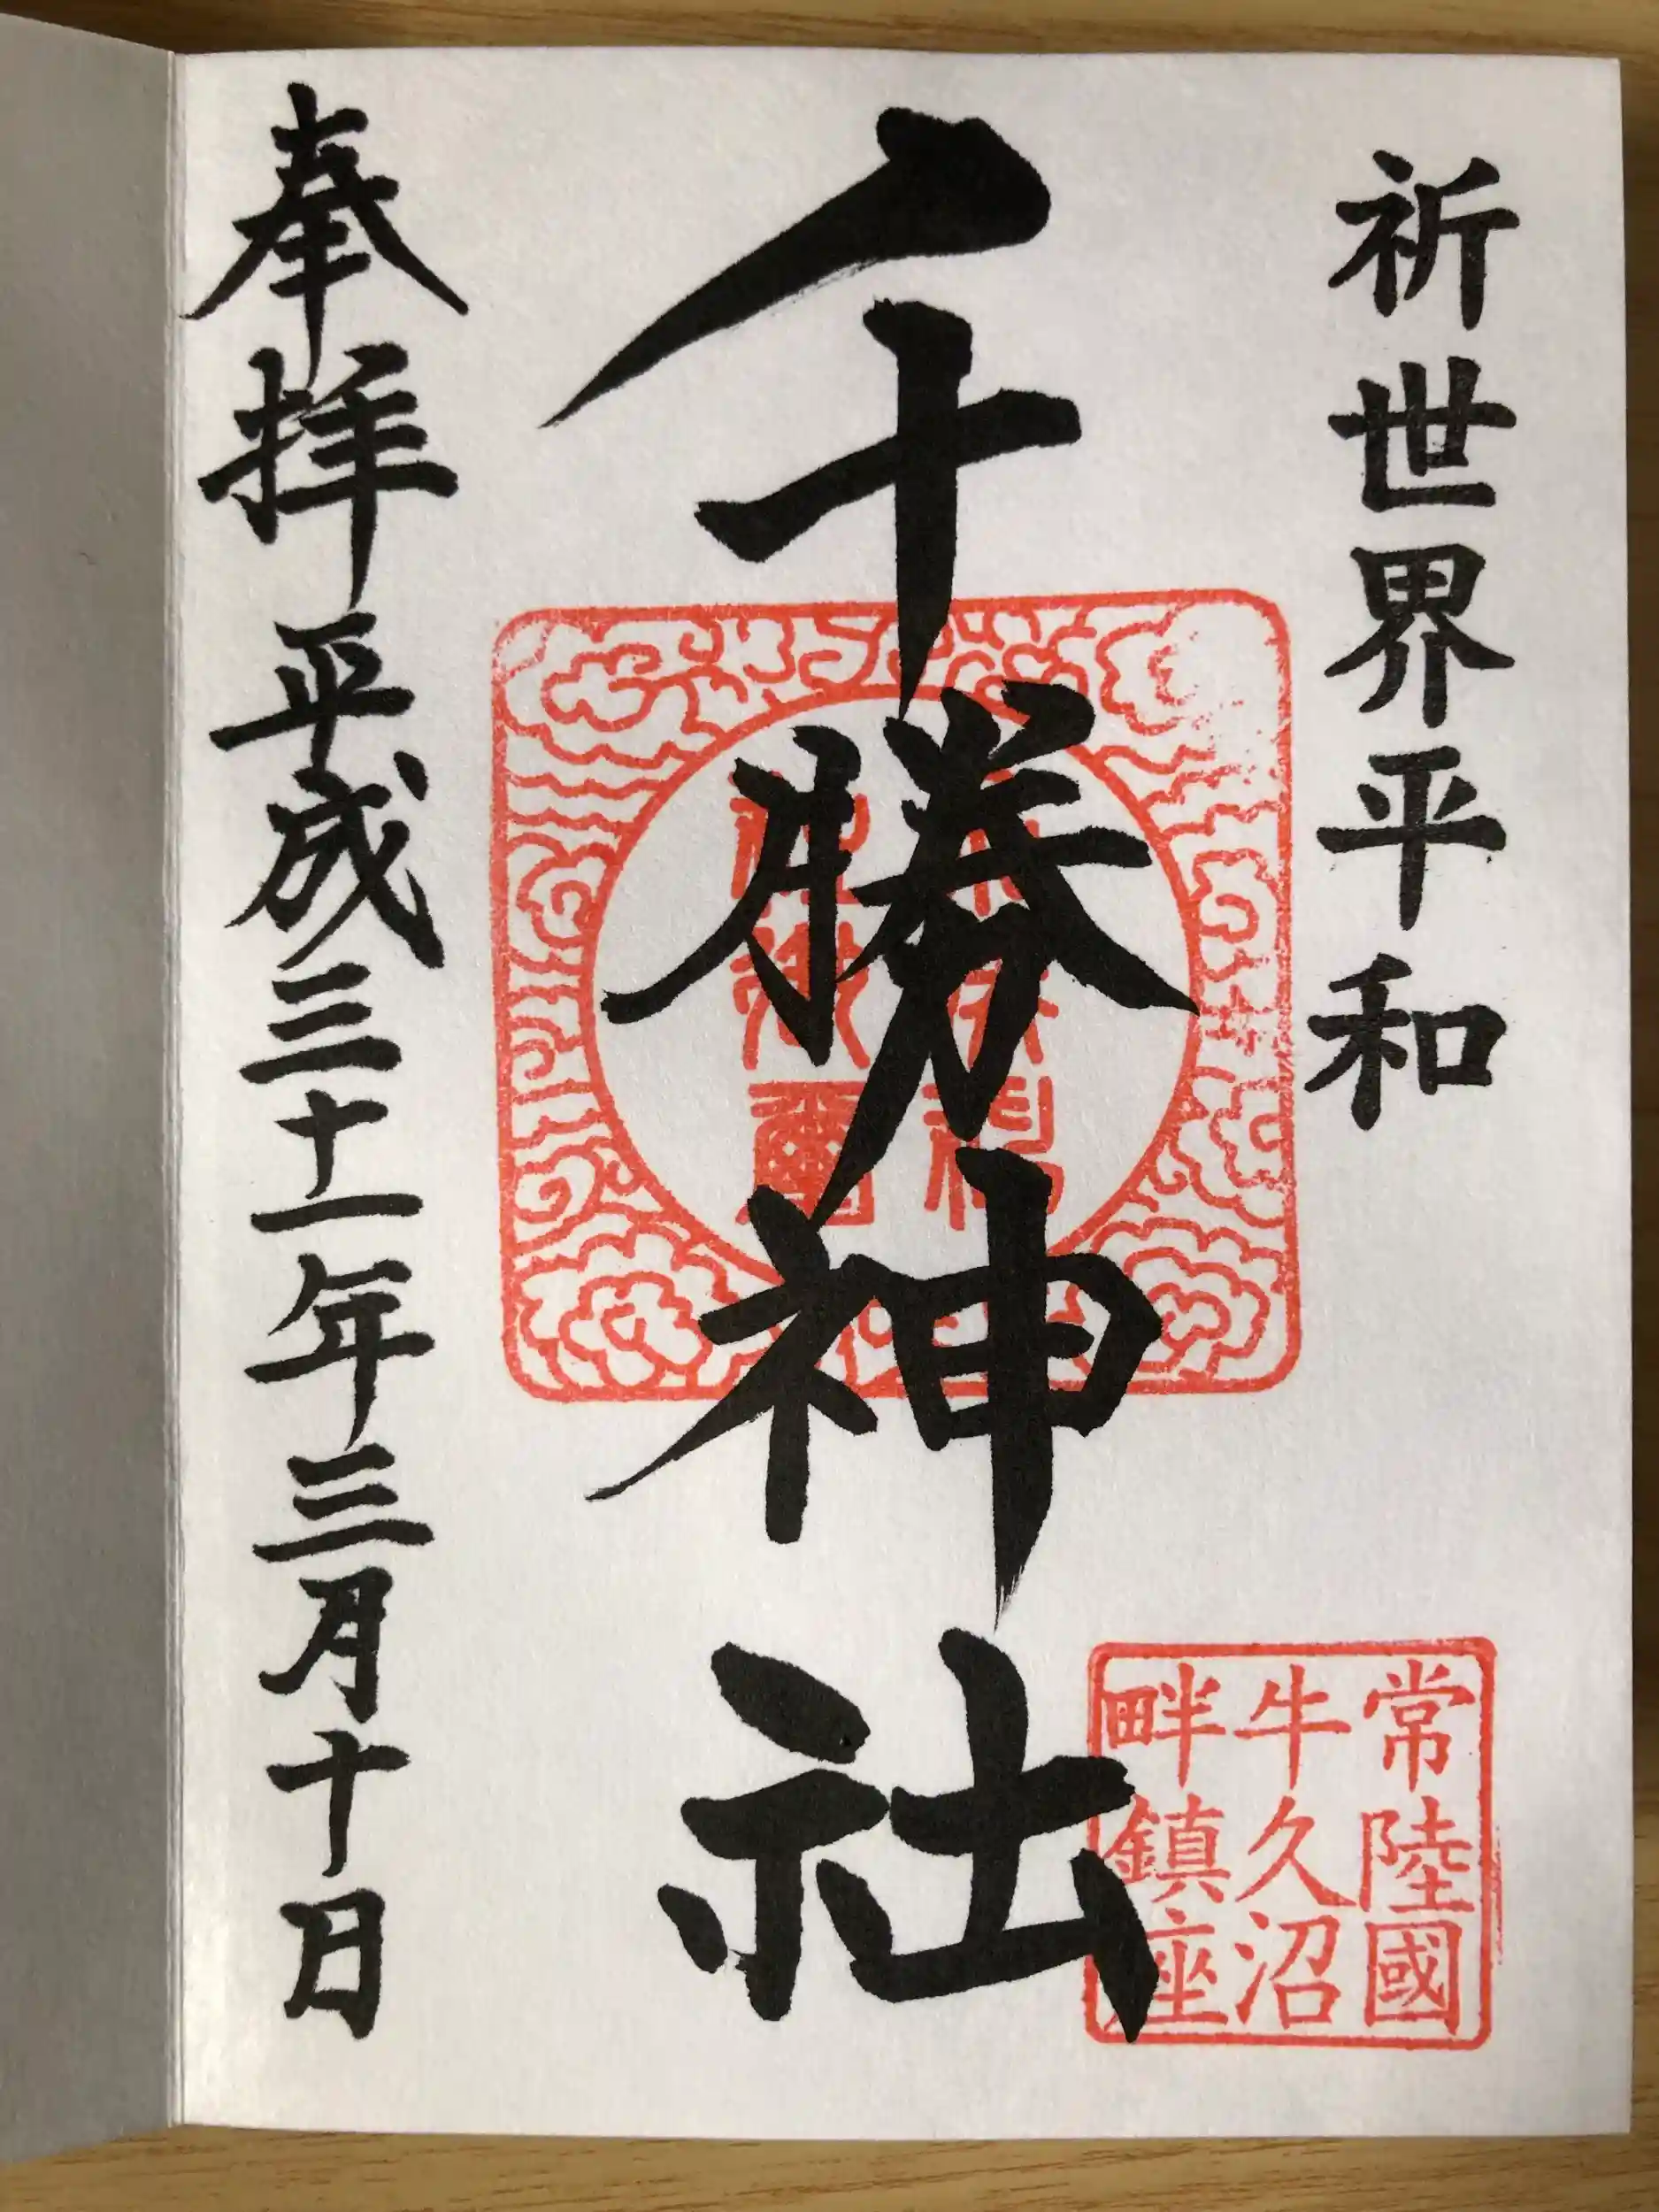 祈世界平和
千勝神社
奉拝平成三十一年三月十日
常陸國
牛久沼
畔鎮座